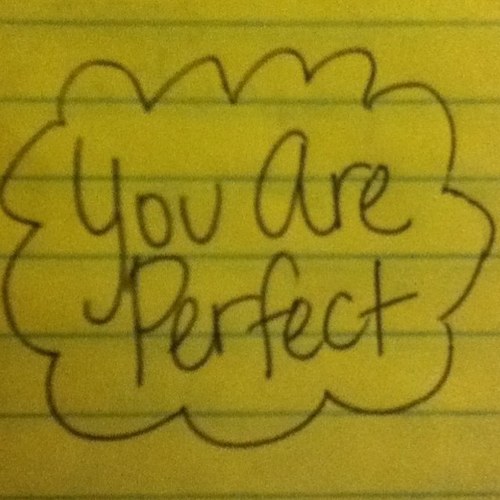 You Are
Perfect